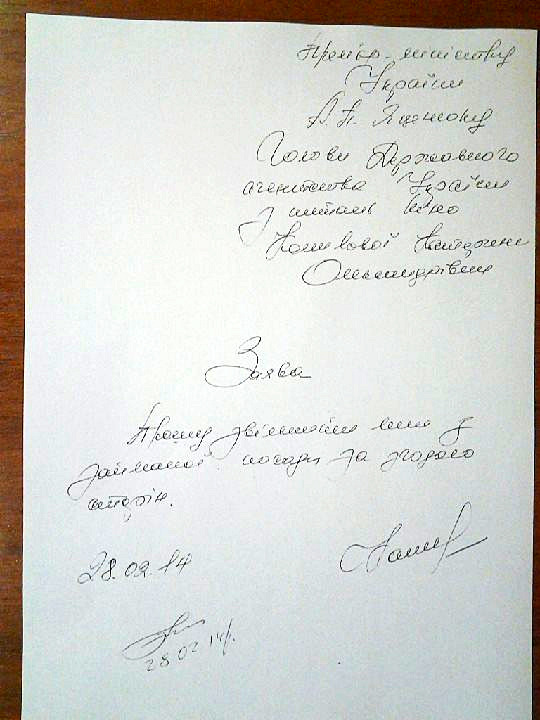 Прем'єр-міністру
України
А.П. Яценюку
Голови Державного
агентства України
з питань кіно
Копилової Катерини
Заява
Прошу звільнити мене з
займаної посади за згодою
сторін.
28.02.14
28 02 14р.